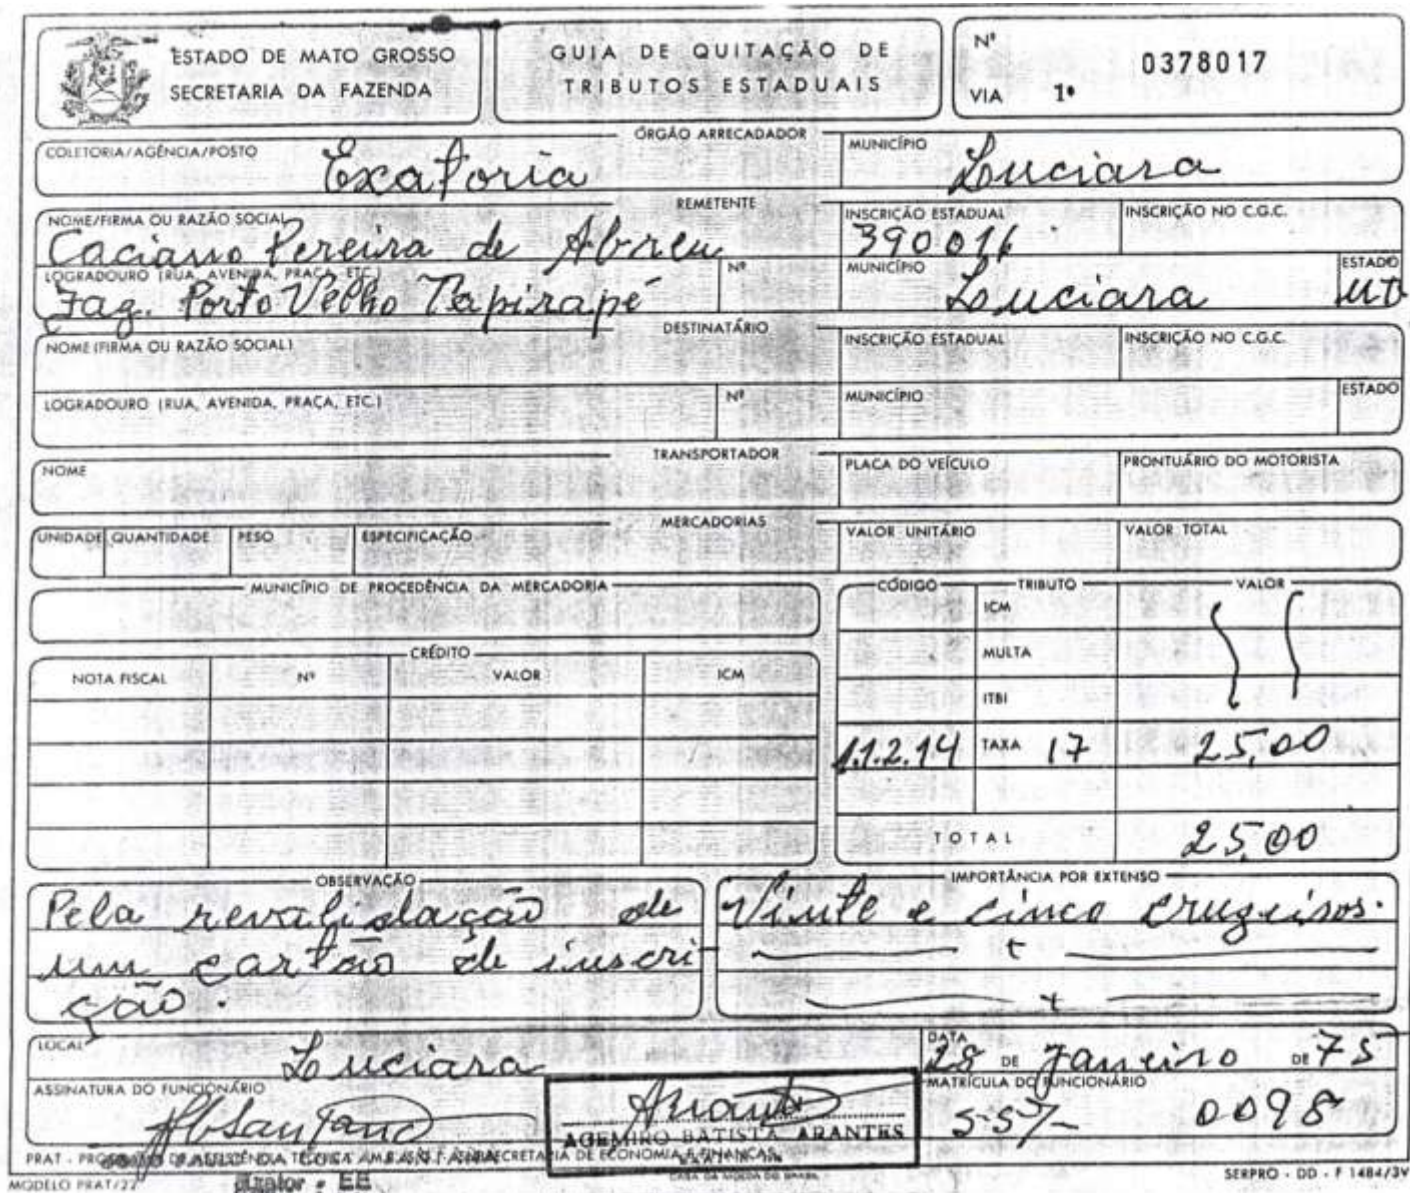 ESTADO DE MATO GROSSO
SECRETARIA DA FAZENDA
GUIA DE QUITAÇÃO DE
TRIBUTOS ESTADUAIS
Nº 0378017
VIA 1ª
ÓRGÃO ARRECADADOR
COLETORIA/AGÊNCIA/POSTO Exatoria MUNICÍPIO Luciara
REMETENTE
NOME/FIRMA OU RAZÃO SOCIAL INSCRIÇÃO ESTADUAL INSCRIÇÃO NO C.G.C.
Caciano Pereira de Abreu 390016
LOGRADOURO (RUA, AVENIDA, PRAÇA, ETC.) Nº MUNICÍPIO ESTADO
Faz. Porto Velho Tapirapé Luciara MT
DESTINATÁRIO
NOME (FIRMA OU RAZÃO SOCIAL) INSCRIÇÃO ESTADUAL INSCRIÇÃO NO C.G.C.
LOGRADOURO (RUA, AVENIDA, PRAÇA, ETC.) Nº MUNICÍPIO ESTADO
TRANSPORTADOR
NOME PLACA DO VEÍCULO PRONTUÁRIO DO MOTORISTA
MERCADORIAS
UNIDADE QUANTIDADE PESO ESPECIFICAÇÃO VALOR UNITÁRIO VALOR TOTAL
MUNICÍPIO DE PROCEDÊNCIA DA MERCADORIA
CRÉDITO
NOTA FISCAL Nº VALOR ICM
CÓDIGO TRIBUTO VALOR
ICM
MULTA
ITBI
1.1.2.14 TAXA 17 25,00
TOTAL 25,00
OBSERVAÇÃO
Pela revalidação de
um cartão de inscri-
ção.
IMPORTÂNCIA POR EXTENSO
Vinte e cinco cruzeiros.
LOCAL Luciara
DATA 28 DE Janeiro DE 75
ASSINATURA DO FUNCIONÁRIO
Arantes
AGEMIRO BATISTA ARANTES
MATRÍCULA DO FUNCIONÁRIO
0098
PRAT - ECONOMIA E FINANÇAS
CASA DA MOEDA DO BRASIL
MODELO PRAT/22
Exator - EE
SERPRO - DD - F 1484/3V